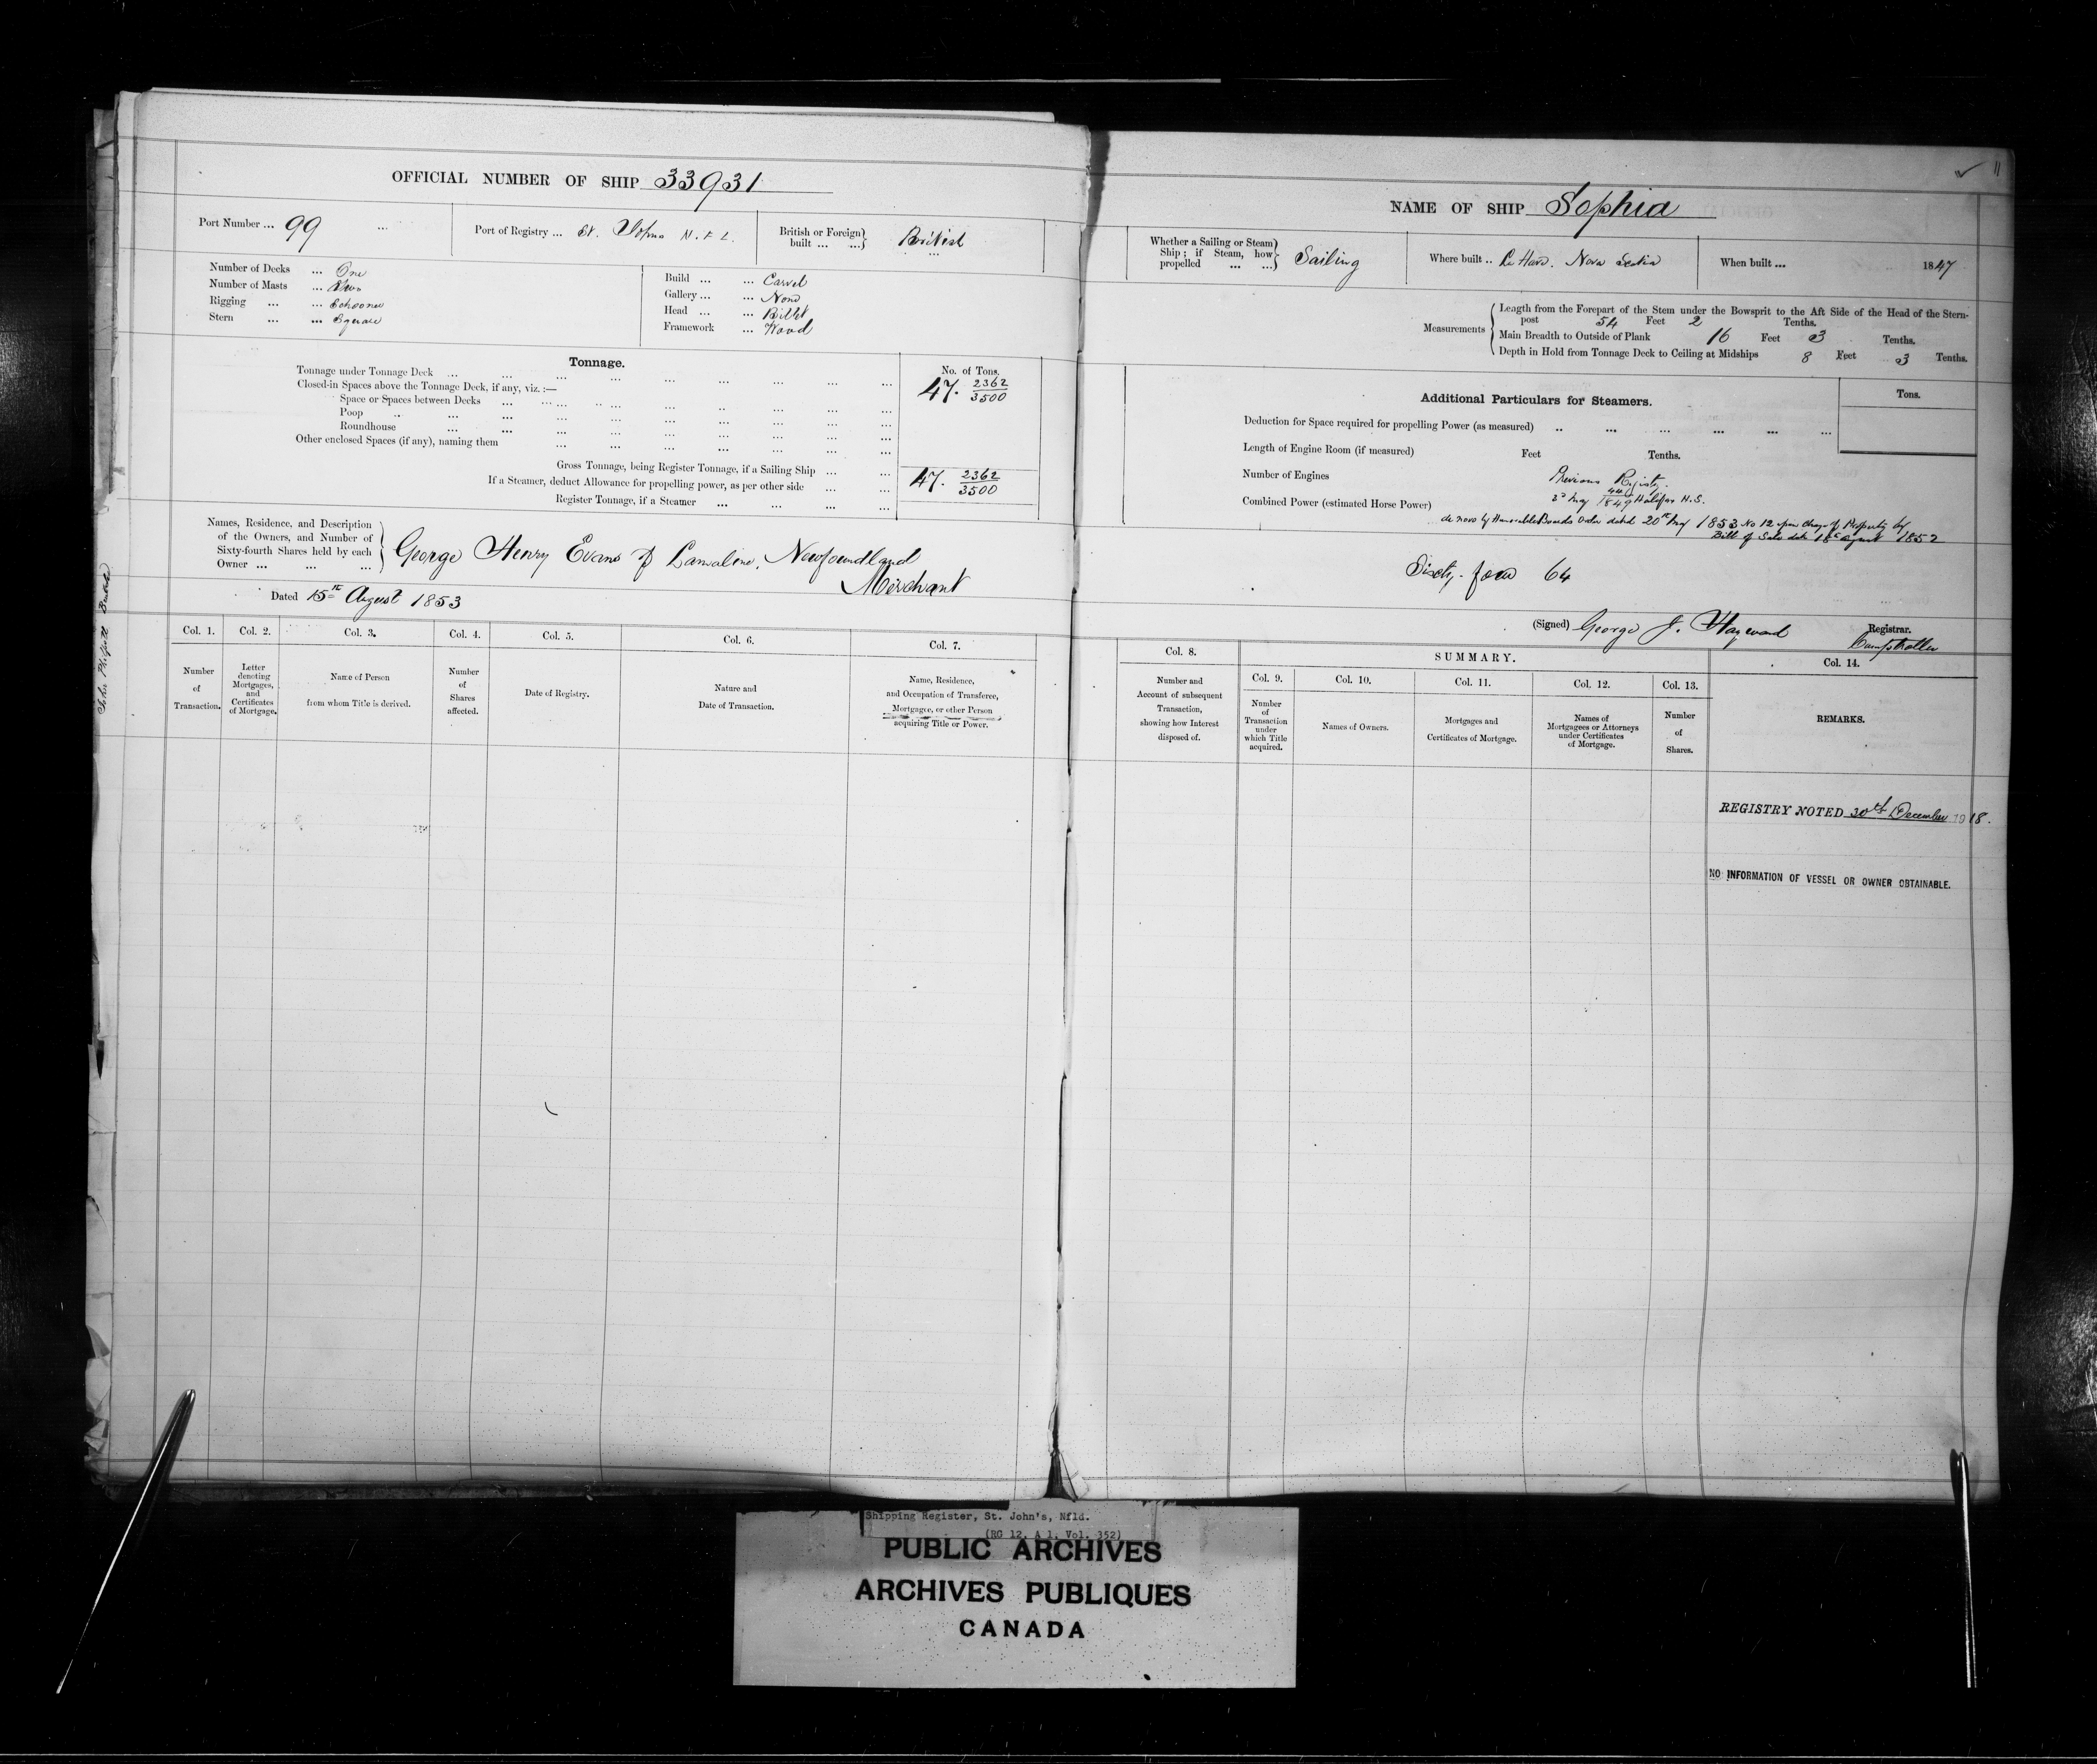 OFFICIAL NUMBER OF SHIP 33931
Port Number ... 99 ...
Port of Registry ... St. Johns N.F.L.
British or Foreign built ... ... British
Number of Decks ... One
Number of Masts ... Two
Rigging ... ... Schooner
Stern ... ... Square
Build ... ... Carvel
Gallery ... ... None
Head ... ... Billet
Framework ... Wood
Tonnage.
No. of Tons.
Tonnage under Tonnage Deck ... ... ... ... ... ... ... ... ... 47. 2362/3500
Closed-in Spaces above the Tonnage Deck, if any, viz. :—
Space or Spaces between Decks
Poop
Roundhouse
Other enclosed Spaces (if any), naming them
Gross Tonnage, being Register Tonnage, if a Sailing Ship ... ... 47. 2362/3500
If a Steamer, deduct Allowance for propelling power, as per other side ... ...
Register Tonnage, if a Steamer ... ... ... ...
Names, Residence, and Description
of the Owners, and Number of
Sixty-fourth Shares held by each
Owner ... ... ...
George Henry Evans of Lamaline, Newfoundland
Merchant
Dated 15th August 1853
Col. 1. Col. 2. Col. 3. Col. 4. Col. 5. Col. 6. Col. 7.
Number
of
Transaction.
Letter
denoting
Mortgages,
and
Certificates
of Mortgage.
Name of Person
from whom Title is derived.
Number
of
Shares
affected.
Date of Registry.
Nature and
Date of Transaction.
Name, Residence,
and Occupation of Transferee,
Mortgagee, or other Person
acquiring Title or Power.
11
NAME OF SHIP Sophia
Whether a Sailing or Steam
Ship ; if Steam, how
propelled ... ...
Sailing
Where built .. La Have. Nova Scotia
When built ... 1847
Measurements
Length from the Forepart of the Stem under the Bowsprit to the Aft Side of the Head of the Stern-
post 54 Feet 2 Tenths.
Main Breadth to Outside of Plank 16 Feet 3 Tenths.
Depth in Hold from Tonnage Deck to Ceiling at Midships 8 Feet 3 Tenths.
Additional Particulars for Steamers.
Tons.
Deduction for Space required for propelling Power (as measured) .. ... ... ... ... ...
Length of Engine Room (if measured) Feet Tenths.
Number of Engines
Combined Power (estimated Horse Power)
Previous Registry.
May 1849 Halifax N.S.
de novo by Honorable Boards Order dated 20th May 1853 No 12 upon change of Property by
Bill of Sale date 18th August 1852
Sixty-four 64
(Signed) George J. Hayward Registrar.
Comptroller
Col. 8.
SUMMARY.
Col. 9. Col. 10. Col. 11. Col. 12. Col. 13. Col. 14.
Number and
Account of subsequent
Transaction,
showing how Interest
disposed of.
Number
of
Transaction
under
which Title
acquired.
Names of Owners.
Mortgages and
Certificates of Mortgage.
Names of
Mortgagees or Attorneys
under Certificates
of Mortgage.
Number
of
Shares.
REMARKS.
REGISTRY NOTED 30th December 1918.
NO INFORMATION OF VESSEL OR OWNER OBTAINABLE.
Shipping Register, St. John's, Nfld.
(RG 12, A 1, Vol. 352)
PUBLIC ARCHIVES
ARCHIVES PUBLIQUES
CANADA